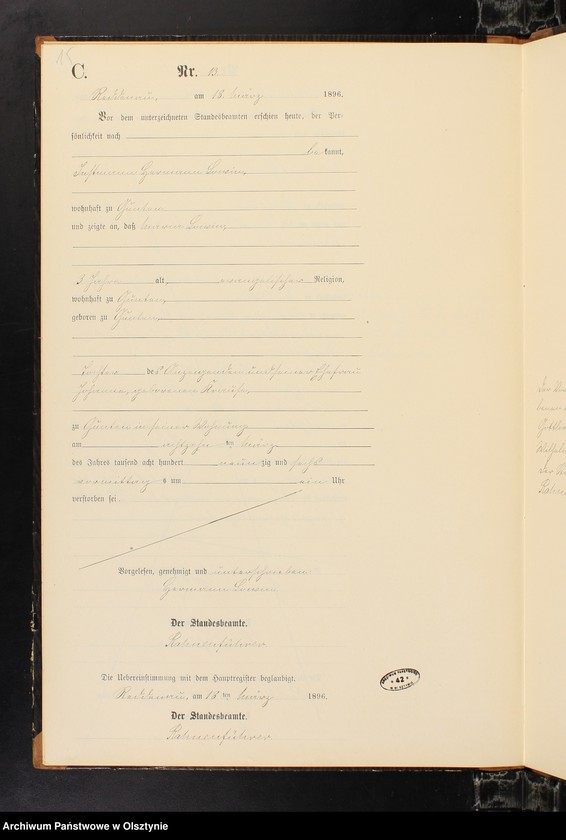 15
C.
Nr. 13
Reddenau, am 18. März 1896.
Vor dem unterzeichneten Standesbeamten erschien heute, der Per-
sönlichkeit nach
be kannt,
Instmann Hermann Lewin,
wohnhaft zu Günten
und zeigte an, daß Lewin,
3 Jahre alt, evangelischer Religion,
wohnhaft zu Günten,
geboren zu Günten,
Tochter des Anzeigenden und seiner Ehefrau
Johanne, geborenen Krause,
zu Günten in seiner Wohnung
am achtzehn ten März
des Jahres tausend acht hundert neun zig und sechs
vormittag s um ein Uhr
verstorben sei.
Vorgelesen, genehmigt und unterschrieben
Hermann Lewin
Der Standesbeamte.
Die Uebereinstimmung mit dem Hauptregister beglaubigt.
Reddenau, am 18 ten März 1896.
Der Standesbeamte.
42
Archiwum Państwowe w Olsztynie